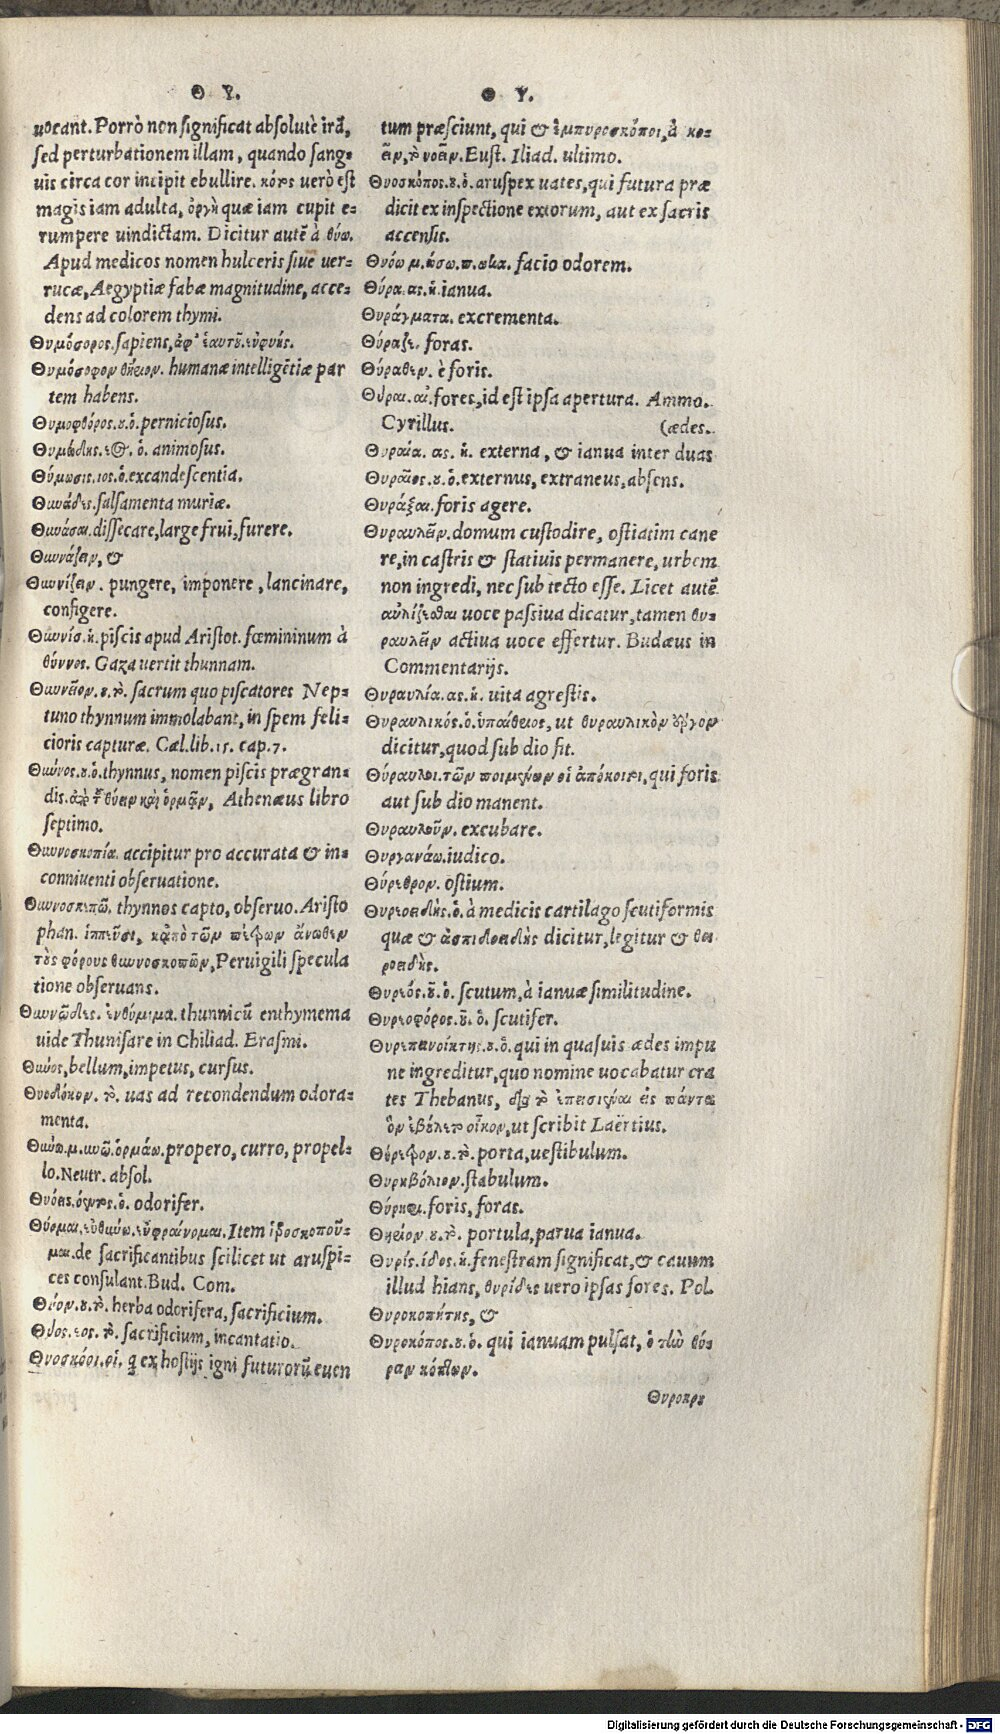 Θ Υ.
uocant. Porrò non significat absolutè irā,
sed perturbationem illam, quando sang=
uis circa cor incipit ebullire. κότος uerò est
magis iam adulta, ὀργὴ quæ iam cupit e=
rumpere uindictam. Dicitur autē à θύω.
Apud medicos nomen hulceris siue uer=
rucæ, Aegyptiæ fabæ magnitudine, acce=
dens ad colorem thymi.
Θυμόσοφος. sapiens, ἀφ' ἑαυτοῦ εὐφυής.
Θυμόσοφον θηρίον. humanæ intelligētiæ par
tem habens.
Θυμοφθόρος.ου.ὁ. perniciosus.
Θυμώδης.εος. ὁ. animosus.
Θύμωσις.ιος.ὁ. excandescentia.
Θυννάδες. salsamenta muriæ.
Θυννάσαι. dissecare, large frui, furere.
Θυννάζειν, &
Θυννίζειν. pungere, imponere, lancinare,
configere.
Θυννίς.ἡ. piscis apud Aristot. fœmininum à
θύννος. Gaza uertit thunnam.
Θυννεῖον.ου.τὸ. sacrum quo piscatores Nep=
tuno thynnum immolabant, in spem feli=
cioris capturæ. Cæl.lib.15. cap.7.
Θύννος.ου.ὁ. thynnus, nomen piscis prægran=
dis. παρὰ τὸ θύειν καὶ ὁρμᾷν, Athenæus libro
septimo.
Θυννοσκοπία. accipitur pro accurata & in=
conniuenti obseruatione.
Θυννοσκοπῶ. thynnos capto, obseruo. Aristo
phan. ἱππεῦσι, κἀπὸ τῶν πετρῶν ἄνωθεν
τοὺς φόρους θυννοσκοπῶν, Peruigili specula
tione obseruans.
Θυννῶδες. ἐνθύμημα. thunnicū enthymema
uide Thunisare in Chiliad. Erasmi.
Θῦνος, bellum, impetus, cursus.
Θυοδόκον. τὸ. uas ad recondendum odora=
menta.
Θύνω.μ.υνῶ. ὁρμάω. propero, curro, propel=
lo. Neutr. absol.
Θυόεις.όεντος.ὁ. odorifer.
Θύομαι. εὐθυμῶ. εὐφραίνομαι. Item ἱεροσκοποῦ=
μαι. de sacrificantibus scilicet ut aruspi=
ces consulant. Bud. Com.
Θύον.ου.τὸ. herba odorifera, sacrificium.
Θύος.εος. τὸ. sacrificium, incantatio.
Θυοσκόοι.οἱ. q ex hostijs igni futurorū euen
Θ Υ.
tum præsciunt, qui & ἐμπυροσκόποι, à κο=
εῖν, τὸ νοεῖν. Eust. Iliad. ultimo.
Θυοσκόπος.ου.ὁ. aruspex uates, qui futura præ
dicit ex inspectione extorum, aut ex sacris
accensis.
Θυόω μ. ώσω. π. ωκα. facio odorem.
Θύρα.ας.ἡ. ianua.
Θυράγματα. excrementa.
Θύραζε. foras.
Θύραθεν. è foris.
Θύραι.αἱ. fores, id est ipsa apertura. Ammo.
Cyrillus.
Θυραία. ας. ἡ. externa, & ianua inter duas
(ædes.
Θυραῖος.ου.ὁ. externus, extraneus, absens.
Θυράξαι. foris agere.
Θυραυλεῖν. domum custodire, ostiatim cane
re, in castris & statiuis permanere, urbem
non ingredi, nec sub tecto esse. Licet autē
αὐλίζεσθαι uoce passiua dicatur, tamen θυ=
ραυλεῖν actiua uoce effertur. Budæus in
Commentarijs.
Θυραυλία.ας.ἡ. uita agrestis.
Θυραυλικός.ὁ. ὑπαίθριος, ut θυραυλικὸν ἔργον
dicitur, quod sub dio fit.
Θύραυλοι. τῶν ποιμένων οἱ ἀπόκοιτοι, qui foris
aut sub dio manent.
Θυραυλοῦν. excubare.
Θυργανάω. iudico.
Θύρεθρον. ostium.
Θυρεοειδής.ὁ. à medicis cartilago scutiformis
quæ & ἀσπιδοειδὴς dicitur, legitur & θυ
ροειδής.
Θυρεός.οῦ.ὁ. scutum, à ianuæ similitudine.
Θυρεοφόρος.οῦ. ὁ. scutifer.
Θυρεπανοίκτης.ου.ὁ. qui in quasuis ædes impu
ne ingreditur, quo nomine uocabatur cra
tes Thebanus, διὰ τὸ ἐπεισιέναι εἰς πάντα
ὃν ἐβούλετο οἶκον, ut scribit Laërtius.
Θύρετρον.ου.τὸ. porta, uestibulum.
Θυρηβόλιον. stabulum.
Θύρηφι. foris, foras.
Θυρίον.ου.τὸ. portula, parua ianua.
Θυρίς.ίδος.ἡ. fenestram significat, & cauum
illud hians, θυρίδες uero ipsas fores. Pol.
Θυροκοπήτης, &
Θυροκόπος.ου.ὁ. qui ianuam pulsat, ὁ τὴν θύ=
ραν κόπτων.
Θυροκρου